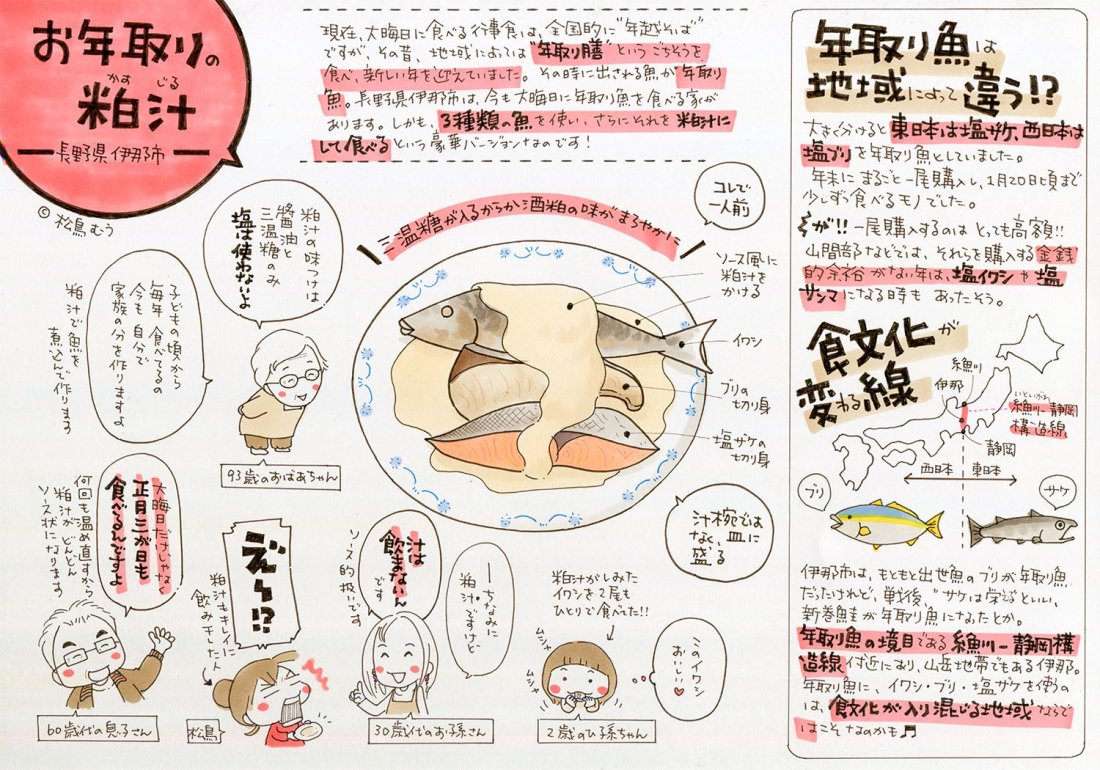 お年取りの
粕汁
かす じる
長野県伊那市
© 松鳥むう
現在、大晦日に食べる行事食は、全国的に"年越そば"
ですが、その昔、地域によっては"年取り膳"というごちそうを
食べ、新しい年を迎えていました。その時に出される魚が"年取り
魚。長野県伊那市は、今も大晦日に年取り魚を食べる家が
あります。しかも、3種類の魚を使い、さらにそれを粕汁に
して食べるという豪華バージョンなのです!
粕汁の味つけは
醤油と
三温糖のみ
塩は使わないよ
子どもの頃から
毎年食べてるの
今も自分で
家族の分を作りますよ
粕汁で魚を
煮込んで作ります
93歳のおばあちゃん
三温糖が入るからか酒粕の味がまろやかに
コレで
一人前
ソース風に
粕汁を
かける
イワシ
ブリの
切り身
塩ザケの
切り身
汁椀では
なく、皿に
盛る
大晦日だけじゃなく
正月三が日も
食べるんですよ
何回も温め直すから
粕汁がどんどん
ソース状になります
60歳代の息子さん
えーっ!?
粕汁キレイに
飲みモした人
松鳥
汁は
飲まないん
です
ソース的扱いです
ーちなみに
粕汁ですけど
30歳代のお孫さん
粕汁がしみた
イワシを2尾も
ひとりで食べた!!
ムシャ
ムシャ
このイワシ
おいしい
2歳のひ孫ちゃん
年取り魚は
地域によって違う!?
大きく分けると東日本は塩ザケ、西日本は
塩ブリを年取り魚としていました。
年末にまるごと一尾購入し、1月20日頃まで
少しずつ食べるモノでした。
が!! 一尾購入するのはとっても高額!!
山間部などでは、それらを購入する金銭
的余裕がない年は、塩イワシや塩
サンマになる時もあったそう。
食文化が
変わる線
糸魚川
伊那
いといがわ
糸魚川-静岡
構造線
静岡
西日本
東日本
ブリ
サケ
伊那市は、もともと出世魚のブリが年取り魚
だったけれど、戦後、"サケは栄える"といい、
新巻鮭が年取り魚になったとか。
年取り魚の境目である糸魚川-静岡構
造線付近にあり、山岳地帯でもある伊那。
年取り魚に、イワシ・ブリ・塩ザケを使うの
は、食文化が入り混じる地域ならで
はこそなのかも♬